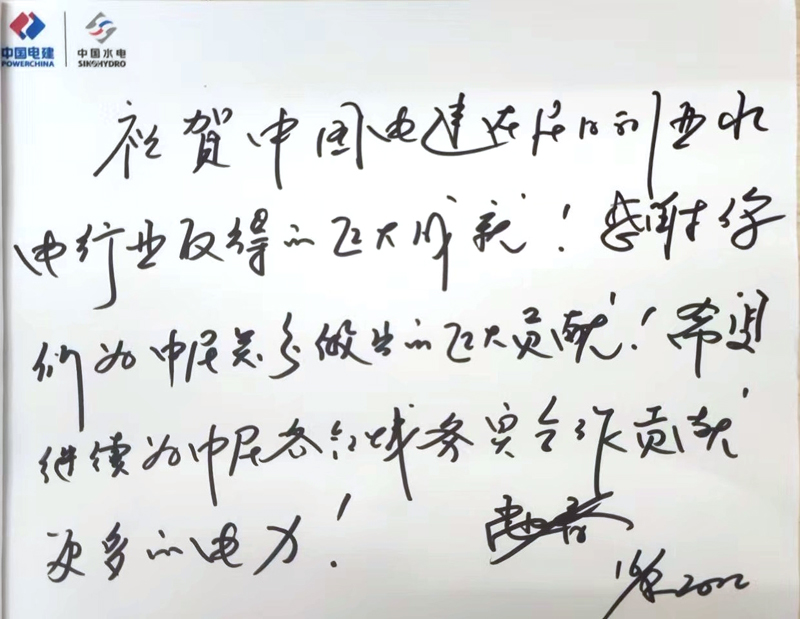 中国电建
POWERCHINA
中国水电
SINOHYDRO
祝贺中国电建在尼日利亚水
电行业取得的巨大成就！感谢你
们为中尼关系做出的巨大贡献！希望
继续为中尼各领域务实合作贡献
更多的电力！
2022